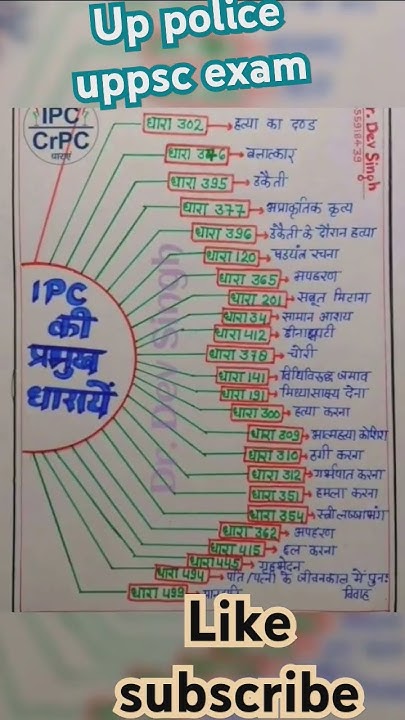 Up police
uppsc exam
IPC
CrPC
धाराएं
Dr. Dev Singh
IPC
की
प्रमुख
धारायें
धारा 302 → हत्या का दण्ड
धारा 346 → बलात्कार
धारा 395 → डकैती
धारा 377 → अप्राकृतिक कृत्य
धारा 396 → डकैती के दौरान हत्या
धारा 120 → षडयंत्र रचना
धारा 365 → अपहरण
धारा 201 → सबूत मिटाना
धारा 34 → सामान आशय
धारा 412 → छीनाझपटी
धारा 378 → चोरी
धारा 141 → विधिविरुद्ध जमाव
धारा 191 → मिथ्यासाक्ष्य देना
धारा 300 → हत्या करना
धारा 309 → आत्महत्या कोशिश
धारा 310 → ठगी करना
धारा 312 → गर्भपात करना
धारा 351 → हमला करना
धारा 354 → स्त्री लज्जाभंग
धारा 362 → अपहरण
धारा 415 → छल करना
धारा 445 → गृहभेदन
धारा 494 → पति/पत्नी के जीवनकाल में पुनः
विवाह
धारा 499
Dr. Dev Singh
Like
subscribe